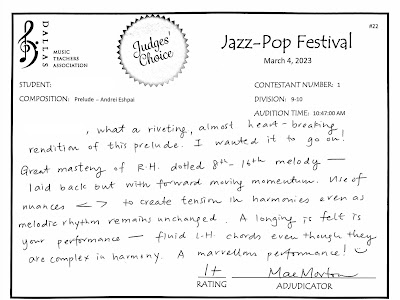 DALLAS
MUSIC
TEACHERS
ASSOCIATION
Judges'
Choice
Jazz-Pop Festival
March 4, 2023
#22
STUDENT:
CONTESTANT NUMBER: 1
COMPOSITION: Prelude – Andrei Eshpai
DIVISION: 9-10
AUDITION TIME: 10:47:00 AM
, what a riveting, almost heart-breaking
rendition of this prelude. I wanted it to go on!
Great mastery of R.H. dotled 8th-16th melody —
laid back but with forward moving momentum. Use of
nuances < > to create tension in harmonies even as
melodic rhythm remains unchanged. A longing is felt is
your performance — fluid L.H. chords even though they
are complex in harmony. A marvellous performance!
1+ Mae Morton
RATING ADJUDICATOR